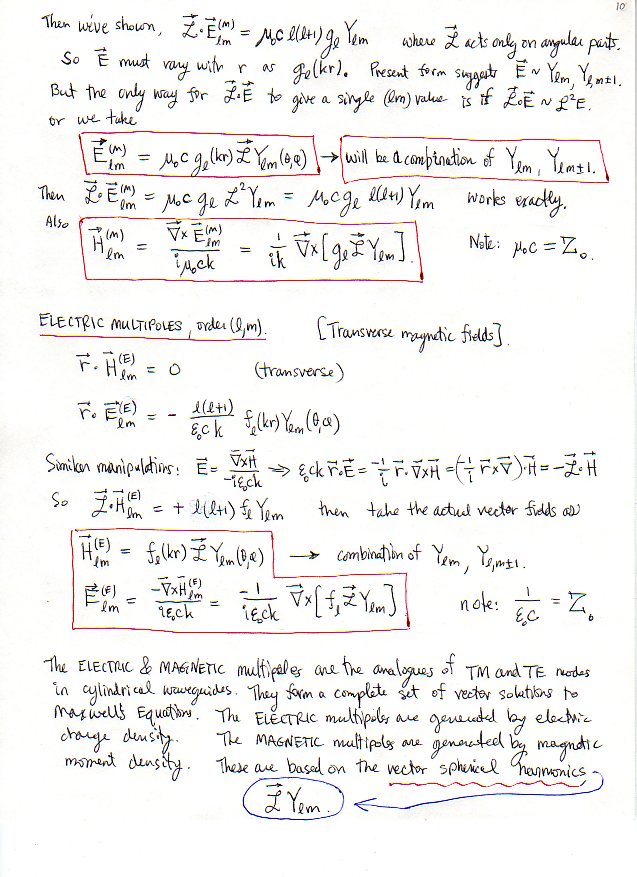 10
Then we've shown, $\vec{\mathcal{L}}\cdot\vec{E}_{lm}^{(M)} = \mu_0 c\, l(l+1)\, g_l Y_{lm}$ where $\vec{\mathcal{L}}$ acts only on angular parts.
So $\vec{E}$ must vary with r as $g_l(kr)$. Present form suggests $\vec{E} \sim Y_{lm}, Y_{l,m\pm1}$.
But the only way for $\vec{\mathcal{L}}\cdot\vec{E}$ to give a single (lm) value is if $\vec{\mathcal{L}}\cdot\vec{E} \sim \mathcal{L}^2 E$.
or we take
$\vec{E}_{lm}^{(M)} = \mu_0 c\, g_l(kr)\, \vec{\mathcal{L}}\, Y_{lm}(\theta,\varphi)$ → will be a combination of $Y_{lm}, Y_{lm\pm1}$.
Then $\vec{\mathcal{L}}\cdot\vec{E}_{lm}^{(M)} = \mu_0 c\, g_l\, \mathcal{L}^2 Y_{lm} = \mu_0 c\, g_l\, l(l+1)\, Y_{lm}$ works exactly.
Also
$\vec{H}_{lm}^{(M)} = \frac{\vec{\nabla}\times\vec{E}_{lm}^{(M)}}{i\mu_0 ck} = \frac{1}{ik}\vec{\nabla}\times[g_l \vec{\mathcal{L}} Y_{lm}]$. Note: $\mu_0 c = Z_0$.
ELECTRIC MULTIPOLES, order (l,m). [Transverse magnetic fields].
$\vec{r}\cdot\vec{H}_{lm}^{(E)} = 0$ (transverse)
$\vec{r}\cdot\vec{E}_{lm}^{(E)} = -\frac{l(l+1)}{\epsilon_0 ck} f_l(kr) Y_{lm}(\theta,\varphi)$
Similar manipulations: $\vec{E} = \frac{\vec{\nabla}\times\vec{H}}{-i\epsilon_0 ck} \Rightarrow \epsilon_0 ck\, \vec{r}\cdot\vec{E} = \frac{-1}{i}\vec{r}\cdot\vec{\nabla}\times\vec{H} = (-\frac{1}{i}\vec{r}\times\vec{\nabla})\cdot\vec{H} = -\vec{\mathcal{L}}\cdot\vec{H}$
So $\vec{\mathcal{L}}\cdot\vec{H}_{lm}^{(E)} = +\, l(l+1) f_l Y_{lm}$ then take the actual vector fields as
$\vec{H}_{lm}^{(E)} = f_l(kr)\, \vec{\mathcal{L}}\, Y_{lm}(\theta,\varphi)$ → combination of $Y_{lm}, Y_{l,m\pm1}$.
$\vec{E}_{lm}^{(E)} = \frac{-\vec{\nabla}\times\vec{H}_{lm}^{(E)}}{i\epsilon_0 ck} = \frac{-1}{i\epsilon_0 ck}\vec{\nabla}\times[f_l \vec{\mathcal{L}} Y_{lm}]$ note: $\frac{1}{\epsilon_0 c} = Z_0$
The ELECTRIC & MAGNETIC multipoles are the analogues of TM and TE modes
in cylindrical waveguides. They form a complete set of vector solutions to
Maxwell's Equations. The ELECTRIC multipoles are generated by electric
charge density. The MAGNETIC multipoles are generated by magnetic
moment density. These are based on the vector spherical harmonics
$\vec{\mathcal{L}}\, Y_{lm}$.